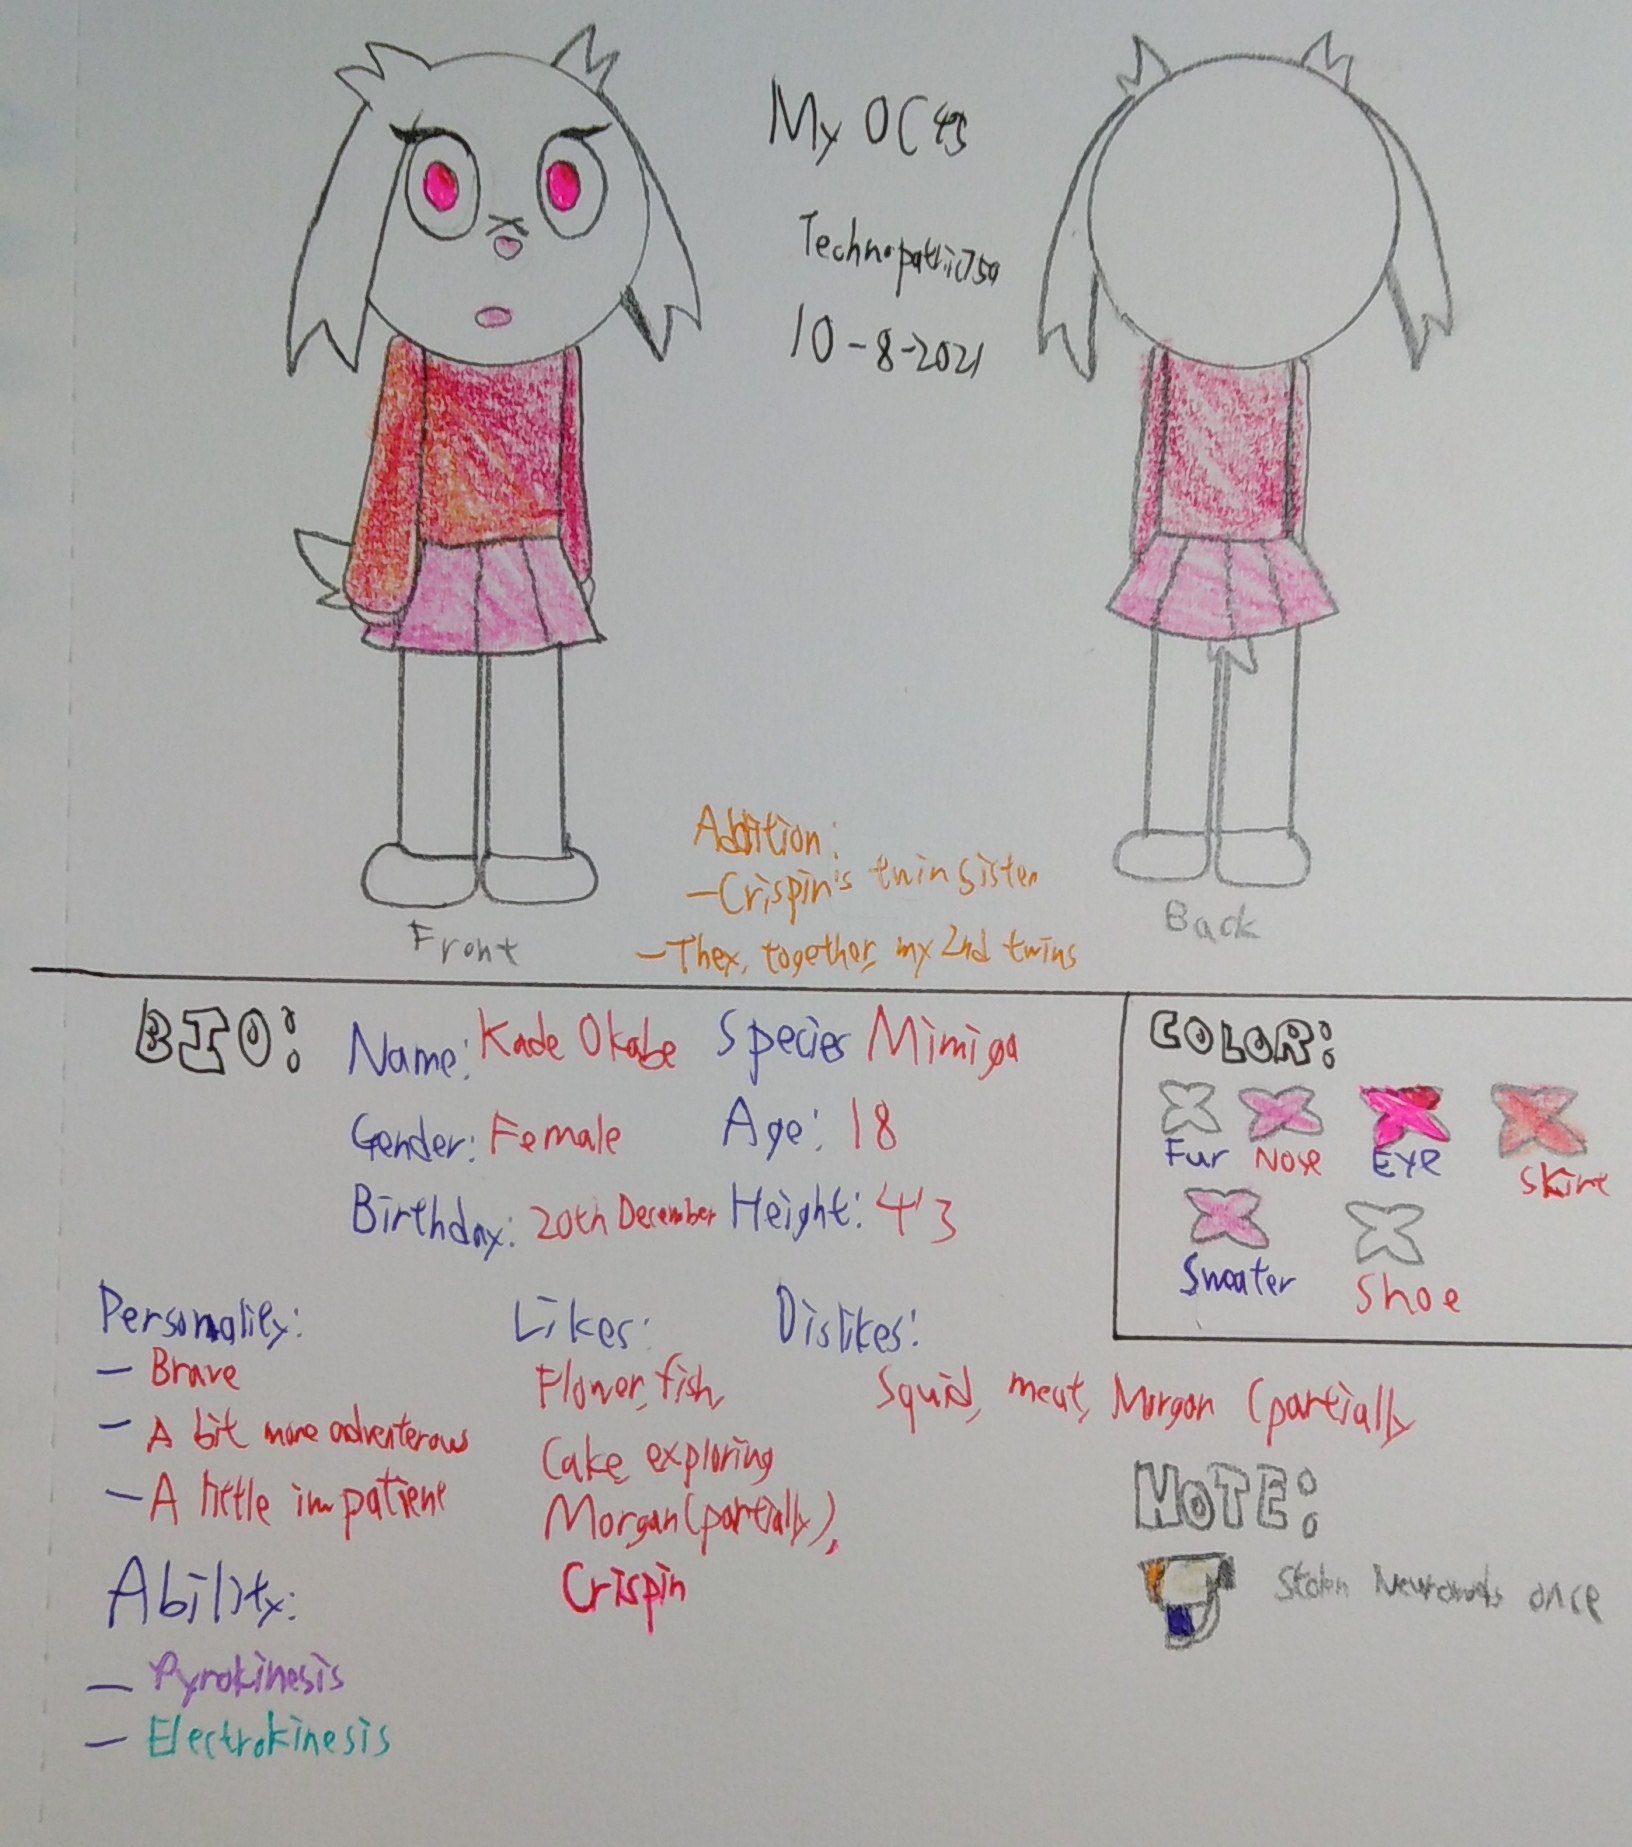 My OC 45
10-8-2021
Front
Back
Addition:
-Crispin's twin sister
-They, together, my 2nd twins
BIO:
Name: Kade Okabe Species Mimiga
Gender: Female Age: 18
Birthday: 20th December Height: 4'3
COLOR:
Fur Nose Eye Skirt
Sweater Shoe
Personality:
- Brave
- A bit more adventerous
- A little impatient
Likes:
Flower, fish,
Cake, exploring
Morgan (partially),
Crispin
Dislikes:
Squid, meat, Morgan (partially
Ability:
- Pyrokinesis
- Electrokinesis
NOTE:
Stolen once